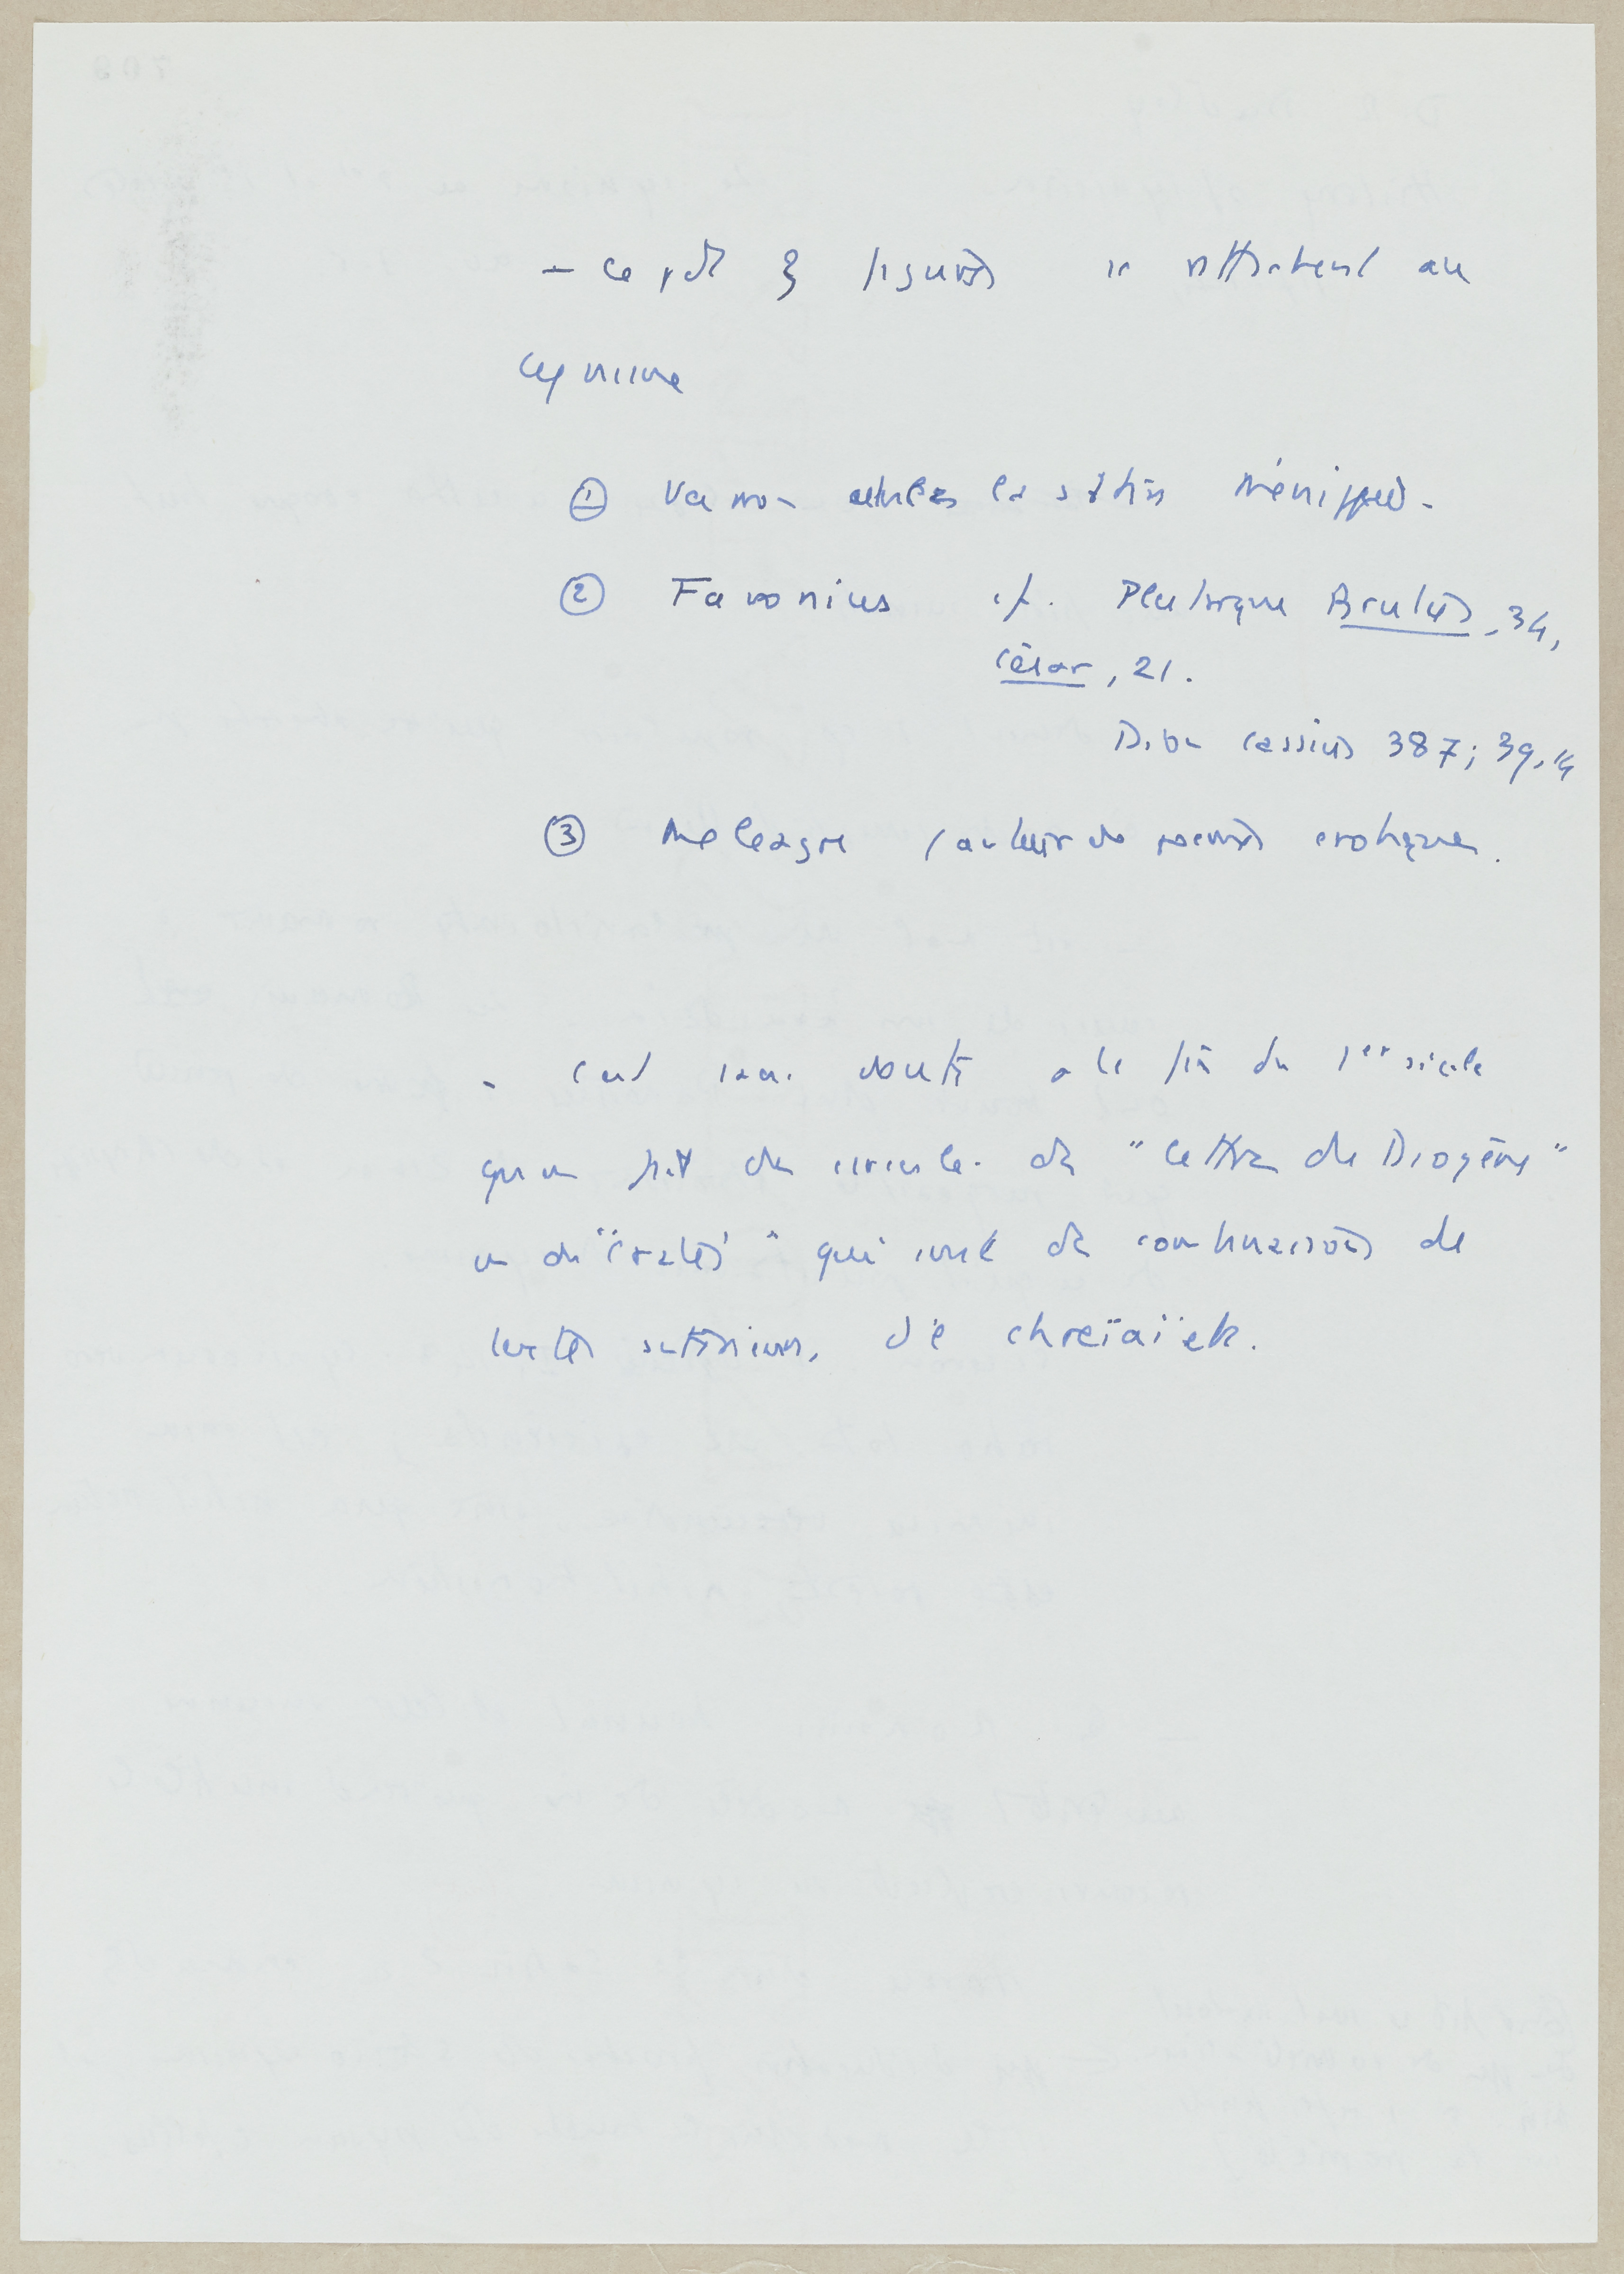 - Cepdt 3 figures se rattachent au
cynisme
① Varron et les satires Ménippées.
② Favonius cf. Plutarque Brutus, 34,
César, 21.
Dion Cassius 38 7; 39, 14
③ Meleagre (auteur de poemes erotiques.
- C'est sans doute a la fin du 1er siècle
qu'on fait de circuler des "lettres de Diogène"
ou de "Cratès" qui sont des combinaisons de
textes antérieurs, de chreïaï etc.